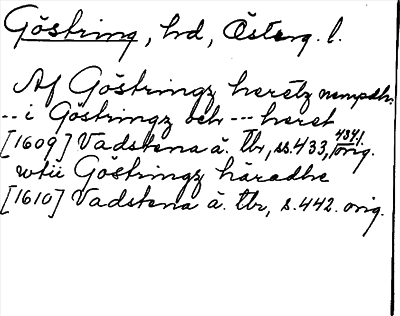 Göstring, hd, Österg. l.
Af Göstringz heretz nempdh.
-- i Göstringz och --- heret
[1609] Vadstena ä. Tbr, ss. 433, 434 f. orig.
wtii Göstringz häradhe
[1610] Vadstena ä. Tbr, s. 442. orig.